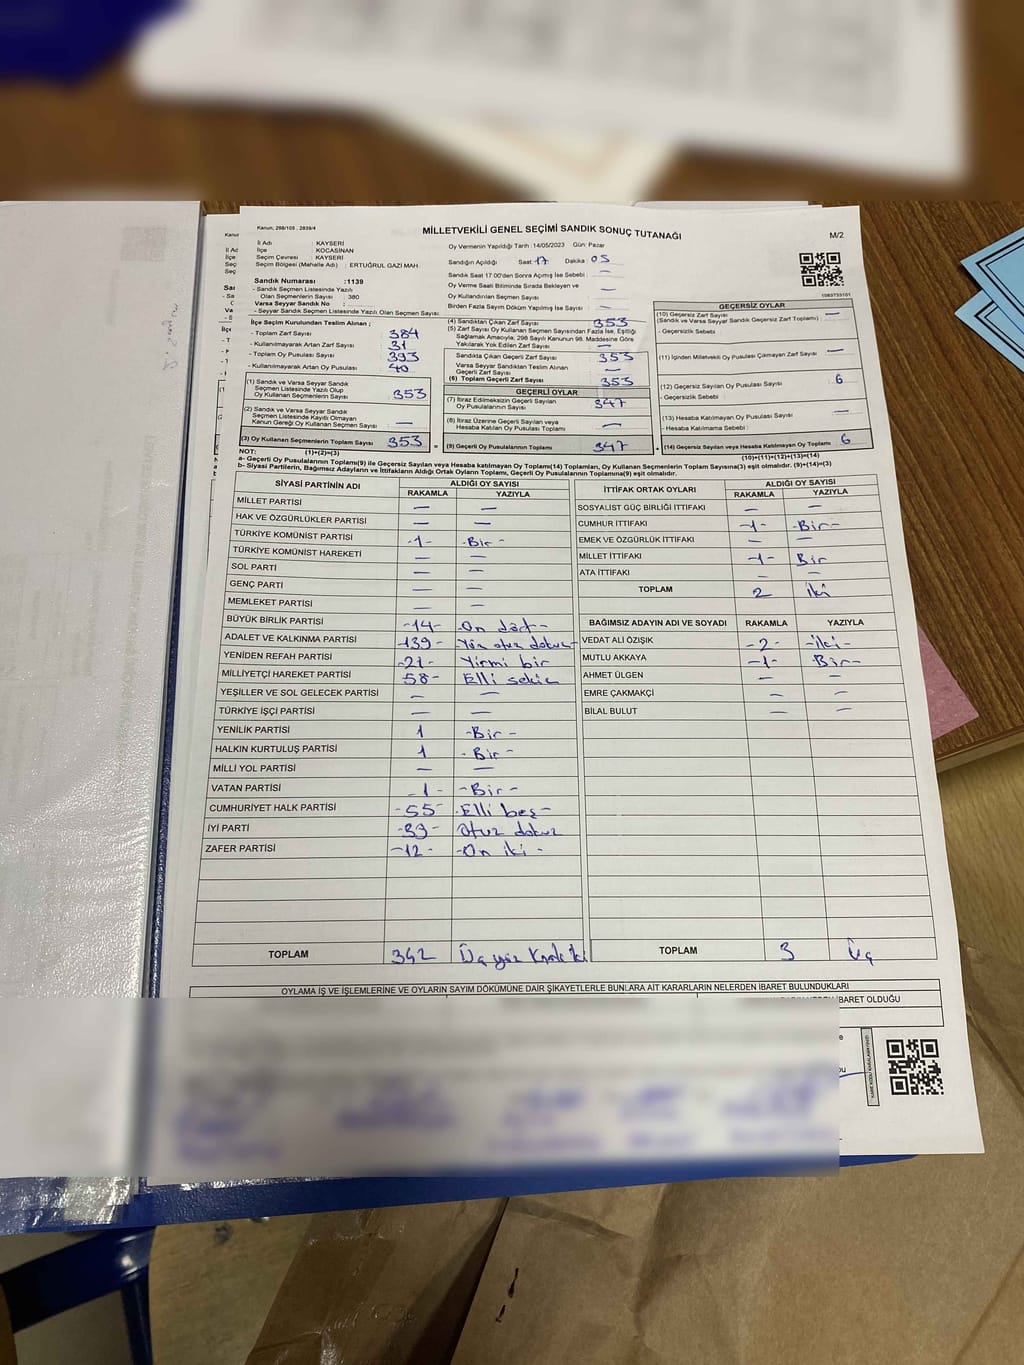 Kanun, 298/105 , 2839/4
MİLLETVEKİLİ GENEL SEÇİMİ SANDIK SONUÇ TUTANAĞI
M/2
İl Adı : KAYSERİ
İlçe : KOCASİNAN
Seçim Çevresi : KAYSERİ
Seçim Bölgesi (Mahalle Adı) : ERTUĞRUL GAZİ MAH.
Oy Vermenin Yapıldığı Tarih : 14/05/2023 Gün: Pazar
Sandığın Açıldığı Saat 17 Dakika : 05
Sandık Saat 17:00'den Sonra Açılmış İse Sebebi : —
Oy Verme Saati Bitiminde Sırada Bekleyen ve
Oy Kullandırılan Seçmen Sayısı : —
Birden Fazla Sayım Döküm Yapılmış İse Sayısı : —
Sandık Numarası :1139
- Sandık Seçmen Listesinde Yazılı
Olan Seçmenlerin Sayısı : 380
Varsa Seyyar Sandık No :
- Seyyar Sandık Seçmen Listesinde Yazılı Olan Seçmen Sayısı:
İlçe Seçim Kurulundan Teslim Alınan ;
- Toplam Zarf Sayısı : 384
- Kullanılmayarak Artan Zarf Sayısı : 31
- Toplam Oy Pusulası Sayısı : 393
- Kullanılmayarak Artan Oy Pusulası : 40
(1) Sandık ve Varsa Seyyar Sandık
Seçmen Listesinde Yazılı Olup
Oy Kullanan Seçmenlerin Sayısı : 353
(2) Sandık ve Varsa Seyyar Sandık
Seçmen Listesinde Kayıtlı Olmayan
Kanun Gereği Oy Kullananlar : —
(3) Oy Kullanan Seçmenlerin Toplam Sayısı : 353
(1)+(2)=(3)
(4) Sandıktan Çıkan Zarf Sayısı : 353
(5) Zarf Sayısı Oy Kullanan Seçmen Sayısından Fazla İse, Eşitliği
Sağlamak Amacıyla; 298 Sayılı Kanunun 98. Maddesine Göre
Yakılarak Yok Edilen Zarf Sayısı : —
Sandıkta Çıkan Geçerli Zarf Sayısı : 353
Varsa Seyyar Sandıktan Teslim Alınan
Geçerli Zarf Sayısı : —
(6) Toplam Geçerli Zarf Sayısı : 353
GEÇERLİ OYLAR
(7) İtiraz Edilmeksizin Geçerli Sayılan
Oy Pusulalarının Sayısı : 347
(8) İtiraz Üzerine Geçerli Sayılan veya
Hesaba Katılan Oy Pusulası Toplamı : —
(9) Geçerli Oy Pusulalarının Toplamı : 347
1083733101
GEÇERSİZ OYLAR
(10) Geçersiz Zarf Sayısı : —
(Sandık ve Varsa Seyyar Sandık Geçersiz Zarf Toplamı) :
- Geçersizlik Sebebi :
(11) İçinden Milletvekili Oy Pusulası Çıkmayan Zarf Sayısı : —
(12) Geçersiz Sayılan Oy Pusulası Sayısı : 6
- Geçersizlik Sebebi :
(13) Hesaba Katılmayan Oy Pusulası Sayısı : —
- Hesaba Katılmama Sebebi :
(14) Geçersiz Sayılan veya Hesaba Katılmayan Oy Toplamı : 6
(10)+(11)+(12)+(13)=(14)
NOT:
a- Geçerli Oy Pusulalarının Toplamı(9) ile Geçersiz Sayılan veya Hesaba katılmayan Oy Toplamı(14) Toplamları, Oy Kullanan Seçmenlerin Toplam Sayısına(3) eşit olmalıdır. (9)+(14)=(3)
b- Siyasi Partilerin, Bağımsız Adayların ve İttifakların Aldığı Ortak Oyların Toplamı, Geçerli Oy Pusulalarının Toplamına(9) eşit olmalıdır.
SİYASİ PARTİNİN ADI ALDIĞI OY SAYISI
RAKAMLA YAZIYLA
MİLLET PARTİSİ — —
HAK VE ÖZGÜRLÜKLER PARTİSİ — —
TÜRKİYE KOMÜNİST PARTİSİ -1- -Bir-
TÜRKİYE KOMÜNİST HAREKETİ — —
SOL PARTİ — —
GENÇ PARTİ — —
MEMLEKET PARTİSİ — —
BÜYÜK BİRLİK PARTİSİ -14- -On dört-
ADALET VE KALKINMA PARTİSİ -139- -Yüz otuz dokuz-
YENİDEN REFAH PARTİSİ -21- Yirmi bir
MİLLİYETÇİ HAREKET PARTİSİ -58- Elli sekiz
YEŞİLLER VE SOL GELECEK PARTİSİ — —
TÜRKİYE İŞÇİ PARTİSİ — —
YENİLİK PARTİSİ 1 -Bir-
HALKIN KURTULUŞ PARTİSİ 1 -Bir-
MİLLİ YOL PARTİSİ — —
VATAN PARTİSİ -1- -Bir-
CUMHURİYET HALK PARTİSİ -55- -Elli beş-
İYİ PARTİ -39- Otuz dokuz
ZAFER PARTİSİ -12- -On iki-
TOPLAM 342 Üç yüz Kırk iki
İTTİFAK ORTAK OYLARI ALDIĞI OY SAYISI
RAKAMLA YAZIYLA
SOSYALİST GÜÇ BİRLİĞİ İTTİFAKI — —
CUMHUR İTTİFAKI -1- -Bir-
EMEK VE ÖZGÜRLÜK İTTİFAKI — —
MİLLET İTTİFAKI -1- Bir
ATA İTTİFAKI — —
TOPLAM 2 iki
BAĞIMSIZ ADAYIN ADI VE SOYADI RAKAMLA YAZIYLA
VEDAT ALİ ÖZIŞIK -2- -İki-
MUTLU AKKAYA -1- Bir-
AHMET ÜLGEN — —
EMRE ÇAKMAKÇİ — —
BİLAL BULUT — —
TOPLAM 3 Üç
OYLAMA İŞ VE İŞLEMLERİNE VE OYLARIN SAYIM DÖKÜMÜNE DAİR ŞİKAYETLERLE BUNLARA AİT KARARLARIN NELERDEN İBARET BULUNDUKLARI
İBARET OLDUĞU